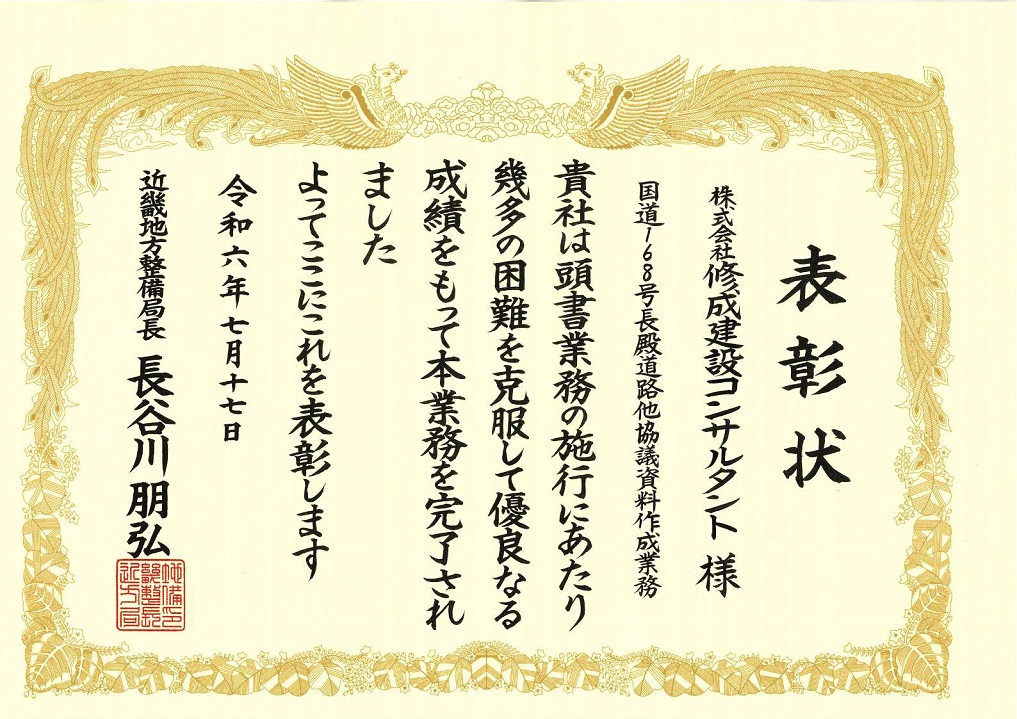 表彰状
株式会社修成建設コンサルタント 様
国道168号長殿道路他協議資料作成業務
貴社は頭書業務の施行にあたり
幾多の困難を克服して優良なる
成績をもって本業務を完了され
ました
よってここにこれを表彰します
令和六年七月十七日
近畿地方整備局長 長谷川朋弘